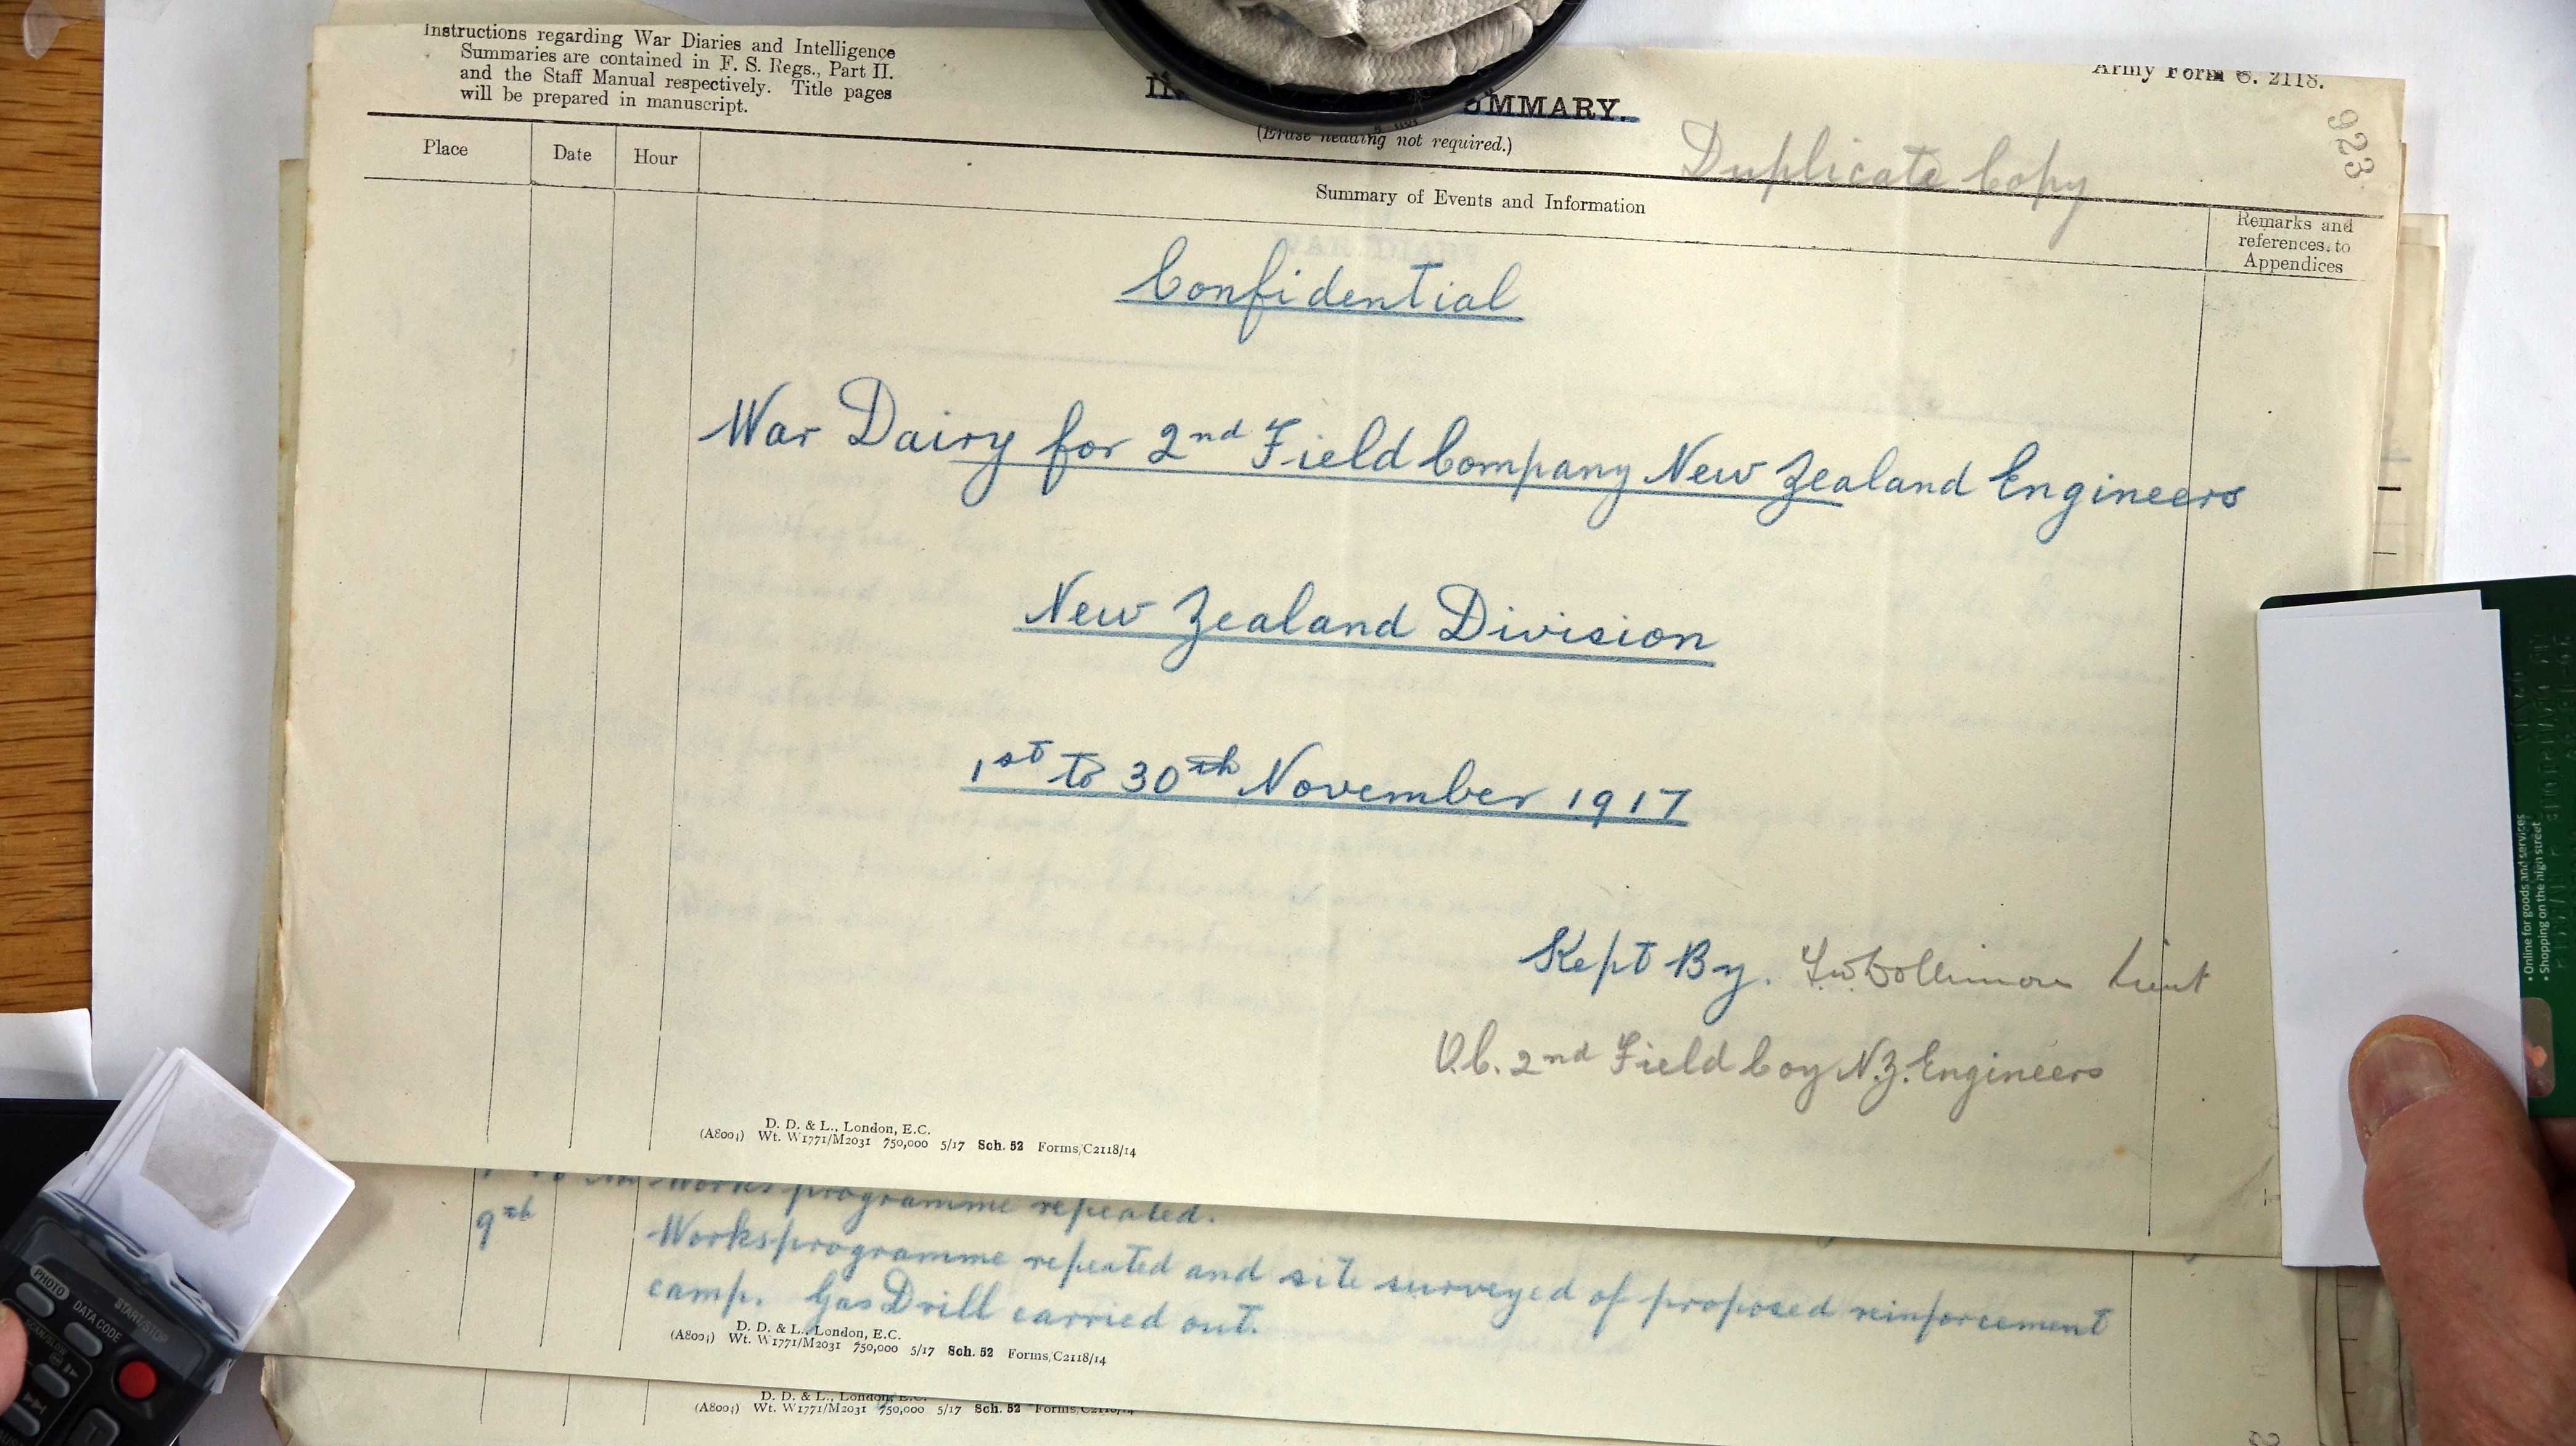 Instructions regarding War Diaries and Intelligence
Summaries are contained in F. S. Regs., Part II.
and the Staff Manual respectively. Title pages
will be prepared in manuscript.
SUMMARY.
(Erase heading not required.)
Army Form C. 2118.
923
Duplicate Copy
Place
Date
Hour
Summary of Events and Information
Remarks and
references to
Appendices
Confidential
War Dairy for 2nd Field Company New Zealand Engineers
New Zealand Division
1st to 30th November 1917
Kept By. Lieut
O.C. 2nd Field Coy N.Z. Engineers
D. D. & L., London, E.C.
(A8004) Wt. W1771/M2031 750,000 5/17 Sch. 52 Forms/C2118/14
Works programme repeated.
9th Works programme repeated and site surveyed of proposed reinforcement
camp. Gas Drill carried out.
D. D. & L., London, E.C.
(A8004) Wt. W1771/M2031 750,000 5/17 Sch. 52 Forms/C2118/14
D. D. & L., London, E.C.
(A8004) Wt. W1771/M2031 750,000 5/17 Sch. 52 Forms/C2118/14
• Online for goods and services
• Shopping on the high street
PHOTO
DATA CODE
START/STOP